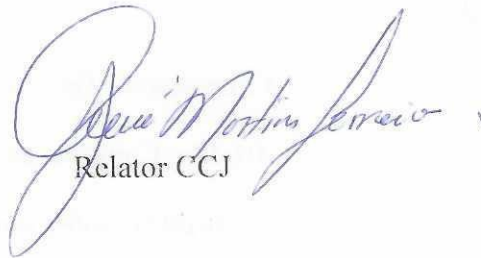 Martins Ferreira
Relator CCJ